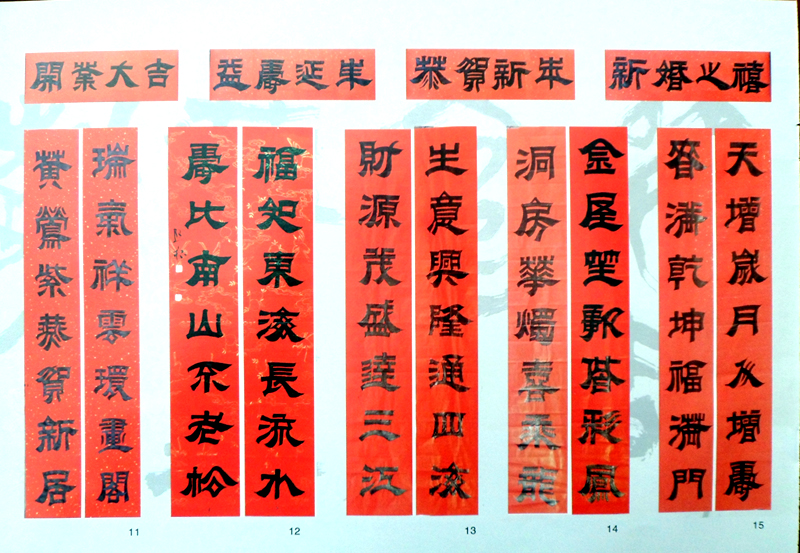 開業大吉
益壽延年
恭賀新年
新婚之禧
天增歲月人增壽
春滿乾坤福滿門
金屋笙歌偕彩鳳
洞房華燭喜乘龍
生意興隆通四海
財源茂盛達三江
福如東海長流水
壽比南山不老松
瑞氣祥雲環畫閣
黃鶯紫燕賀新居
11
12
13
14
15